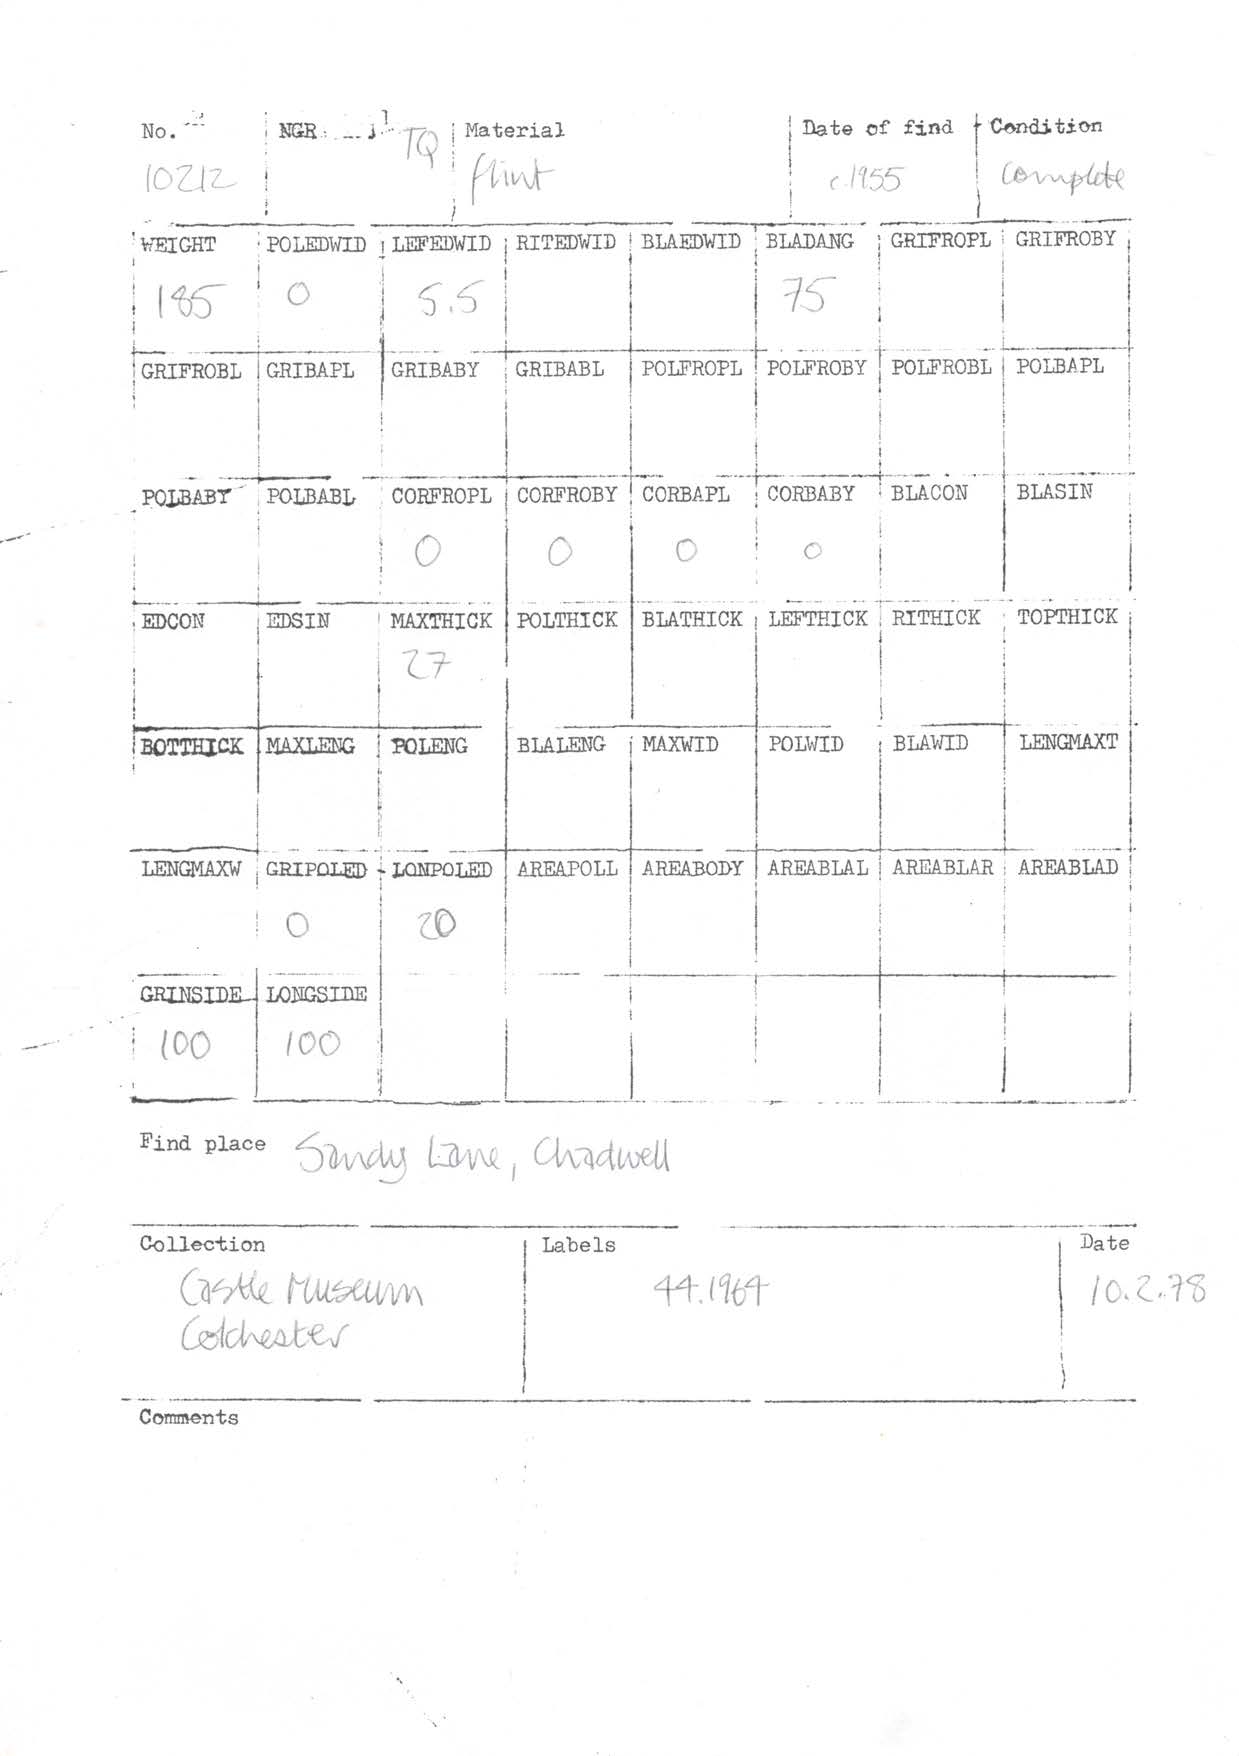 No. NGR Material Date of find Condition
10212 TQ flint c.1955 complete
WEIGHT POLEDWID LEFEDWID RITEDWID BLAEDWID BLADANG GRIFROPL GRIFROBY
185 0 5.5 75
GRIFROBL GRIBAPL GRIBABY GRIBABL POLFROPL POLFROBY POLFROBL POLBAPL
POLBABY POLBABL CORFROPL CORFROBY CORBAPL CORBABY BLACON BLASIN
0 0 0 0
EDCON EDSIN MAXTHICK POLTHICK BLATHICK LEFTHICK RITHICK TOPTHICK
27
BOTTHICK MAXLENG POLENG BLALENG MAXWID POLWID BLAWID LENGMAXT
LENGMAXW GRIPOLED LONPOLED AREAPOLL AREABODY AREABLAL AREABLAR AREABLAD
0 20
GRINSIDE LONGSIDE
100 100
Find place Sandy Lane, Chadwell
Collection Labels Date
Castle Museum 44.1964 10.2.78
Colchester
Comments